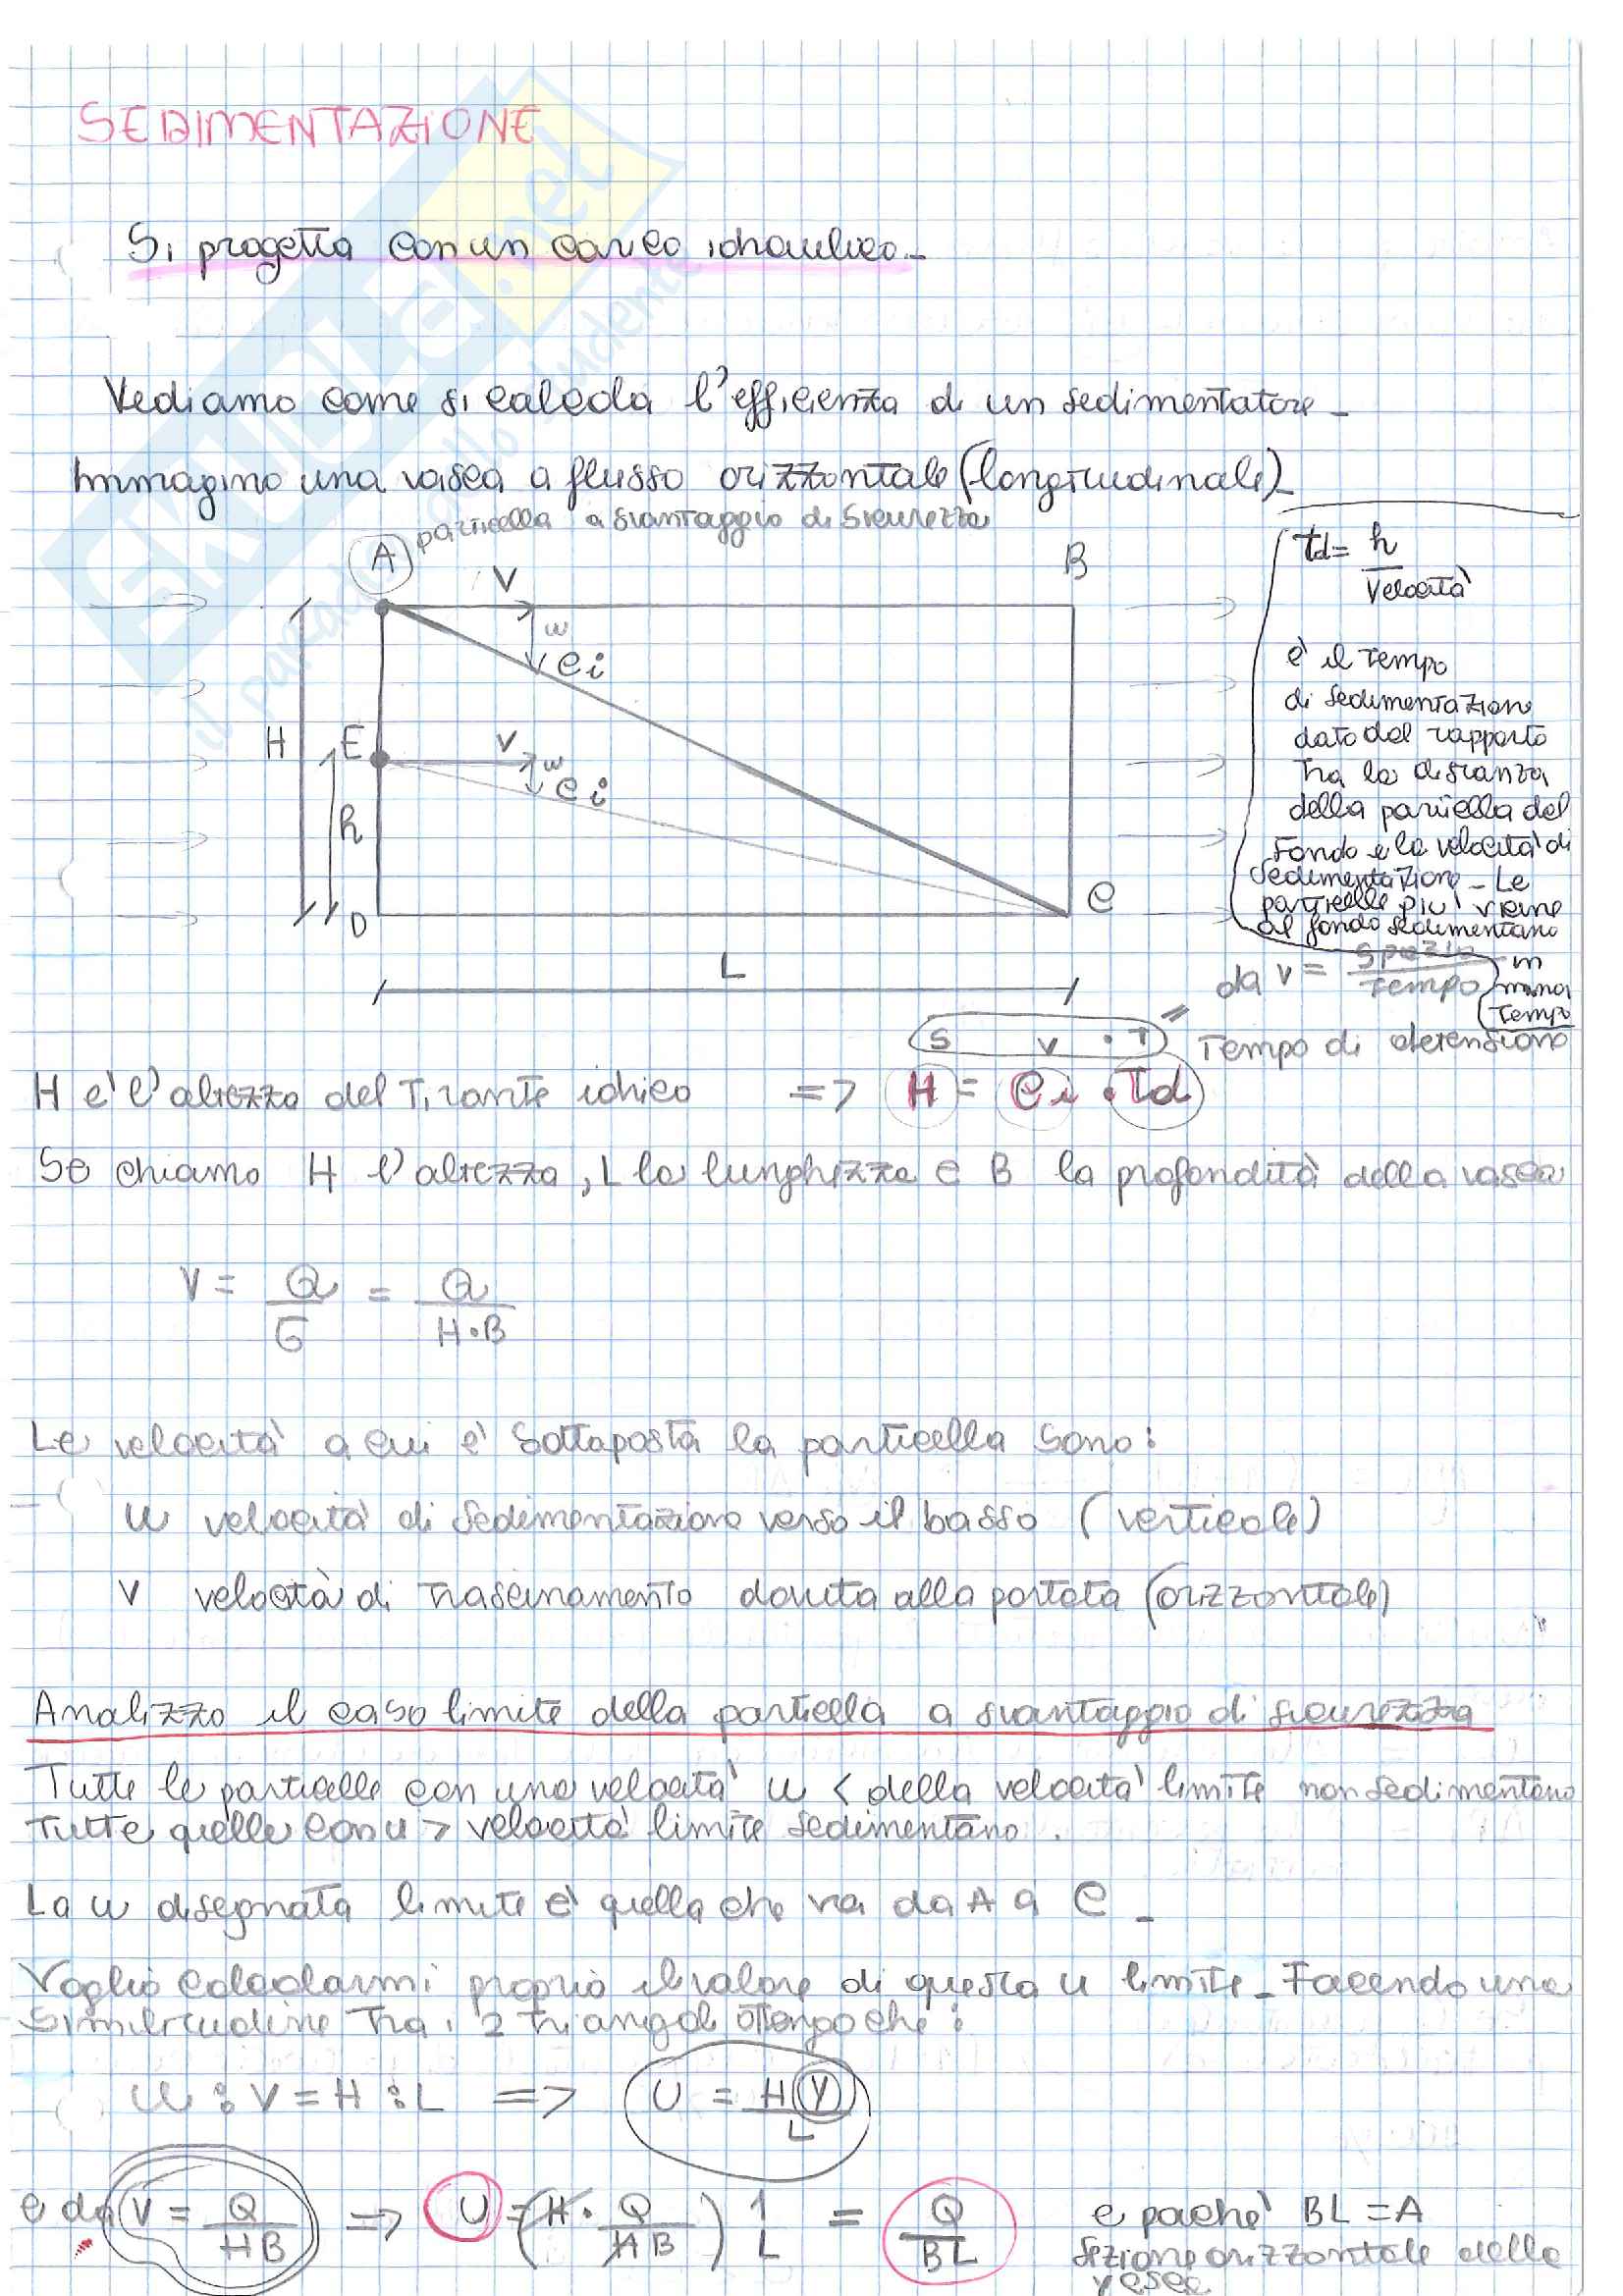 SEDIMENTAZIONE
Si progetta con un carico idraulico -
Vediamo come si calcola l'efficienza di un sedimentatore -
Immagino una vasca a flusso orizzontale (longitudinale)
particella a svantaggio di sicurezza
A
B
V
u
ci
H
E
V
u
ci
h
D
C
L
td = h / Velocità
è il tempo
di sedimentazione
dato dal rapporto
tra la distanza
della particella dal
fondo e la velocità di
sedimentazione - Le
particelle più vicine
al fondo sedimentano
in
minor
tempo
da v = spazio / tempo
S V · T
Tempo di detenzione
H è l'altezza del tirante idrico => H = Ci · Td
Se chiamo H l'altezza, L la lunghezza e B la profondità della vasca
V = Q / G = Q / H·B
Le velocità a cui è sottoposta la particella sono:
u velocità di sedimentazione verso il basso (verticale)
v velocità di trascinamento dovuta alla portata (orizzontale)
Analizzo il caso limite della particella a svantaggio di sicurezza
Tutte le particelle con una velocità u < della velocità limite non sedimentano
tutte quelle con u > velocità limite sedimentano.
La u disegnata limite è quella che va da A a C -
Voglio calcolarmi proprio il valore di questa u limite - Facendo una
similitudine tra i 2 triangoli ottengo che:
u : V = H : L => U = H V / L
e da V = Q / HB => U = (H · Q / HB) 1 / L = Q / BL e poiché BL = A
sezione orizzontale della
vasca
SKUOLA.net